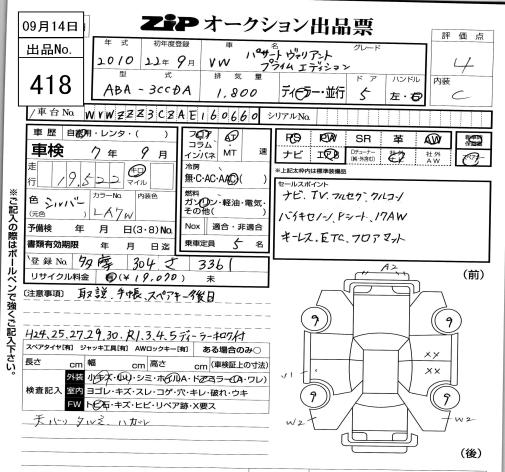 09月14日
ZIP オークション出品票
出品No.
418
評価点
4
内装
C
年式 初年度登録 車名 グレード
2010 22年9月 VW パサートヴァリアント
プライムエディション
型式 排気量 ドア ハンドル
ABA-3CCDA 1,800 ディーラー・並行 5 左・右
車台No. WVWZZZ3CZAE160660 シリアルNo.
車歴 自家用・レンタ・( )
車検 7年9月
走行 19,522 キロ マイル
色 シルバー カラーNo. LA7W 内装色
(元色)
予備検 年 月 日(3・8)No.
書類有効期限 年 月 日迄
登録No. 多摩 304 さ 3361
リサイクル料金 (¥19,070) 未
フロア AT
コラム
インパネ ・MT 速
冷房
無・C・AC・AAC
燃料
ガソリン・軽油・電気・
その他( )
Nox 適合・非適合
乗車定員 5 名
PS PW SR 革 AW
ナビ エアB 社外AW
※上記太枠内は標準装備品
セールスポイント
ナビ、TV、フルセグ、クルコン
バイキセノン、Pシート、17AW
キーレス、ETC、フロアマット
(注意事項) 取説、手帳、スペアキー後日
H24.25.27.29.30.R1.3.4.5ディーラーキロク付
スペアタイヤ[有] ジャッキ工具[有] AWロックキー[有] ある場合のみ○
長さ cm 幅 cm 高さ cm (車検証上の寸法)
検査記入
外装 小キズ・ハリ・シミ・ホイルA・ドアミラー(A・ワレ)
室内 ヨゴレ・キズ・スレ・コゲ・穴・キレ・破れ・ウキ
FW トビ石・キズ・ヒビ・リペア跡・X要ス
天バリタルミ、ハガレ
※ご記入の際はボールペンで強くご記入下さい。
(前)
A2
9 9
XX
XX
W2 9 9 W2
(後)